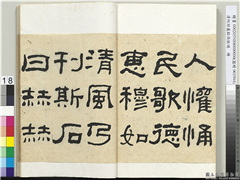 人懽悀
民歌德
惠穆如
清風乃
刊斯石
曰赫赫
18